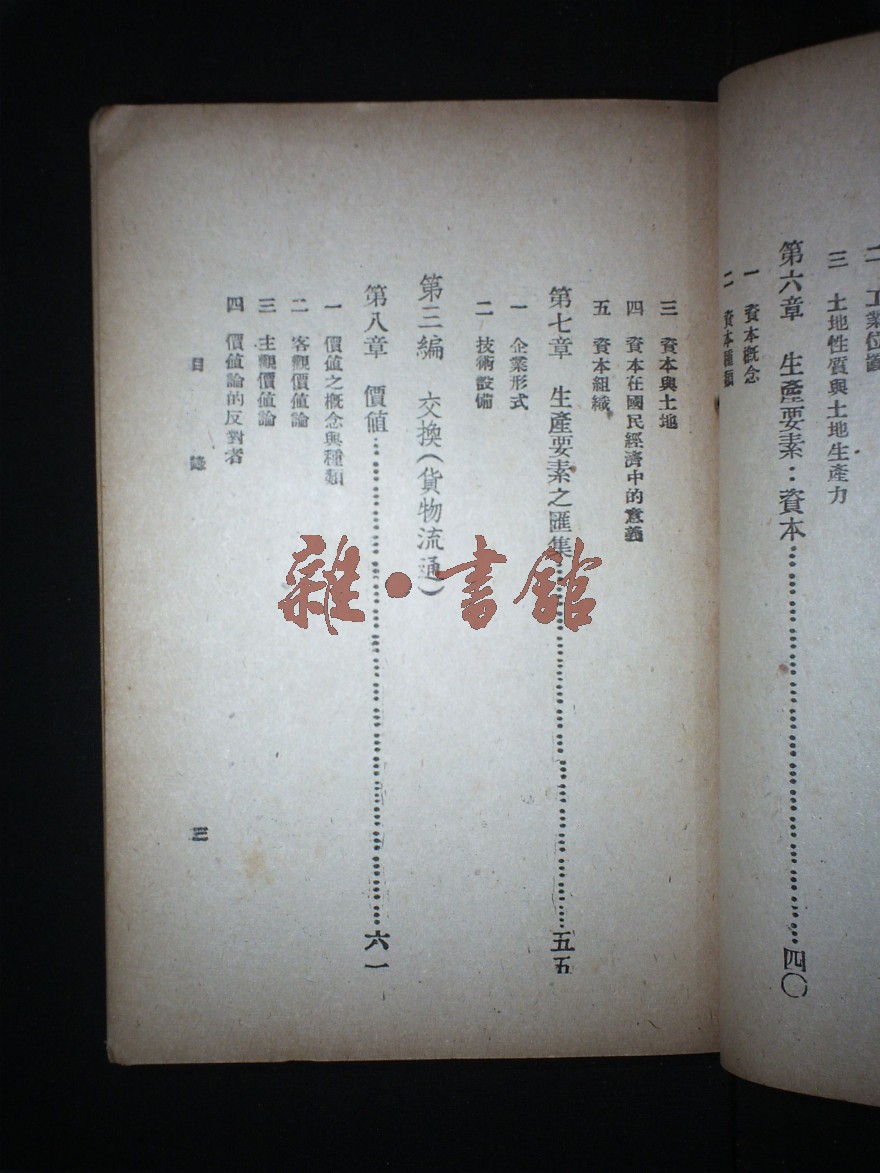 二 工業位置
三 土地性質與土地生產力
第六章 生產要素：資本……四〇
一 資本概念
二 資本種類
三 資本與土地
四 資本在國民經濟中的意義
五 資本組織
第七章 生產要素之匯集……五五
一 企業形式
二 技術設備
第三編 交換（貨物流通）
第八章 價值……六一
一 價值之概念與種類
二 客觀價值論
三 主觀價值論
四 價值論的反對者
目錄 三
雜·書館